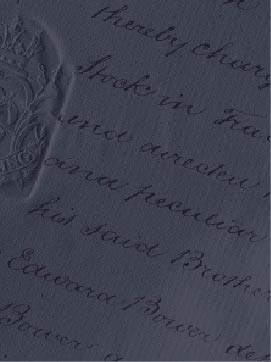 thereby charg
Stock in Tra
and directed
and peculiar
his said Brothe
Edward Bower de
Bower a
ING